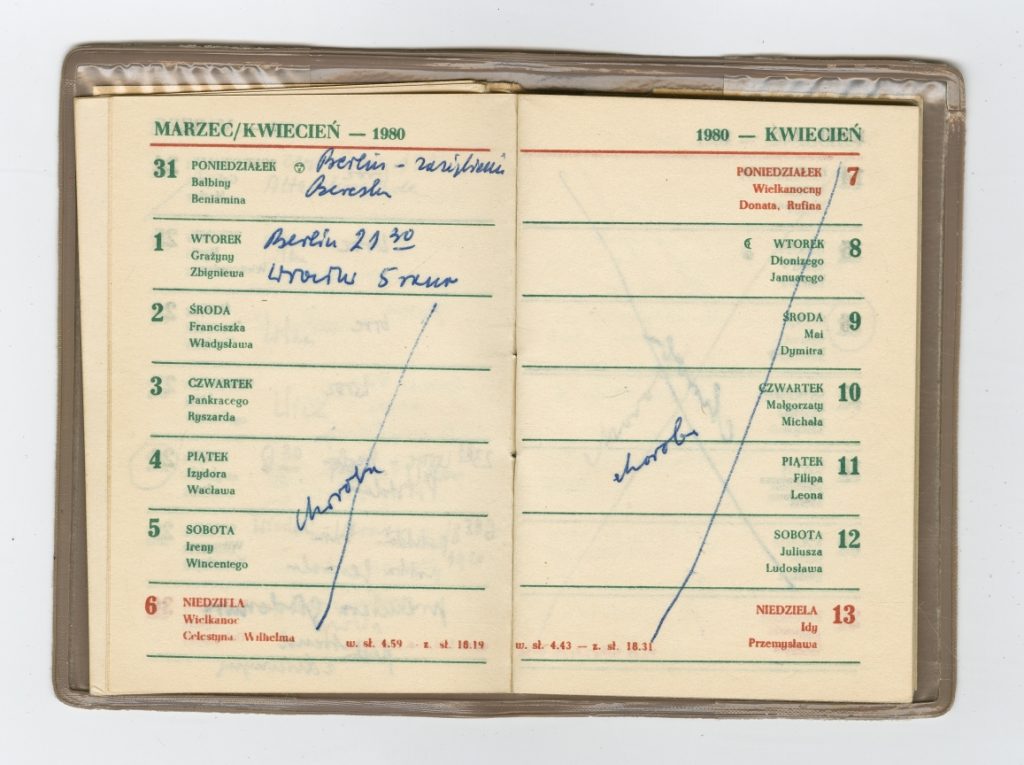 MARZEC/KWIECIEŃ — 1980
31 PONIEDZIAŁEK
Balbiny
Beniamina
Berlin -
1 WTOREK
Grażyny
Zbigniewa
Berlin 21 30
Wrocław 5 rano
2 ŚRODA
Franciszka
Władysława
3 CZWARTEK
Pankracego
Ryszarda
4 PIĄTEK
Izydora
Wacława
choroba
5 SOBOTA
Ireny
Wincentego
6 NIEDZIELA
Wielkanoc
Celestyna, Wilhelma
w. sł. 4.59 - z. sł. 18.19
1980 — KWIECIEŃ
PONIEDZIAŁEK 7
Wielkanocny
Donata, Rufina
WTOREK 8
Dionizego
Januarego
ŚRODA 9
Mai
Dymitra
CZWARTEK 10
Małgorzaty
Michała
choroba
PIĄTEK 11
Filipa
Leona
SOBOTA 12
Juliusza
Ludosława
NIEDZIELA 13
Idy
Przemysława
w. sł. 4.43 — z. sł. 18.31